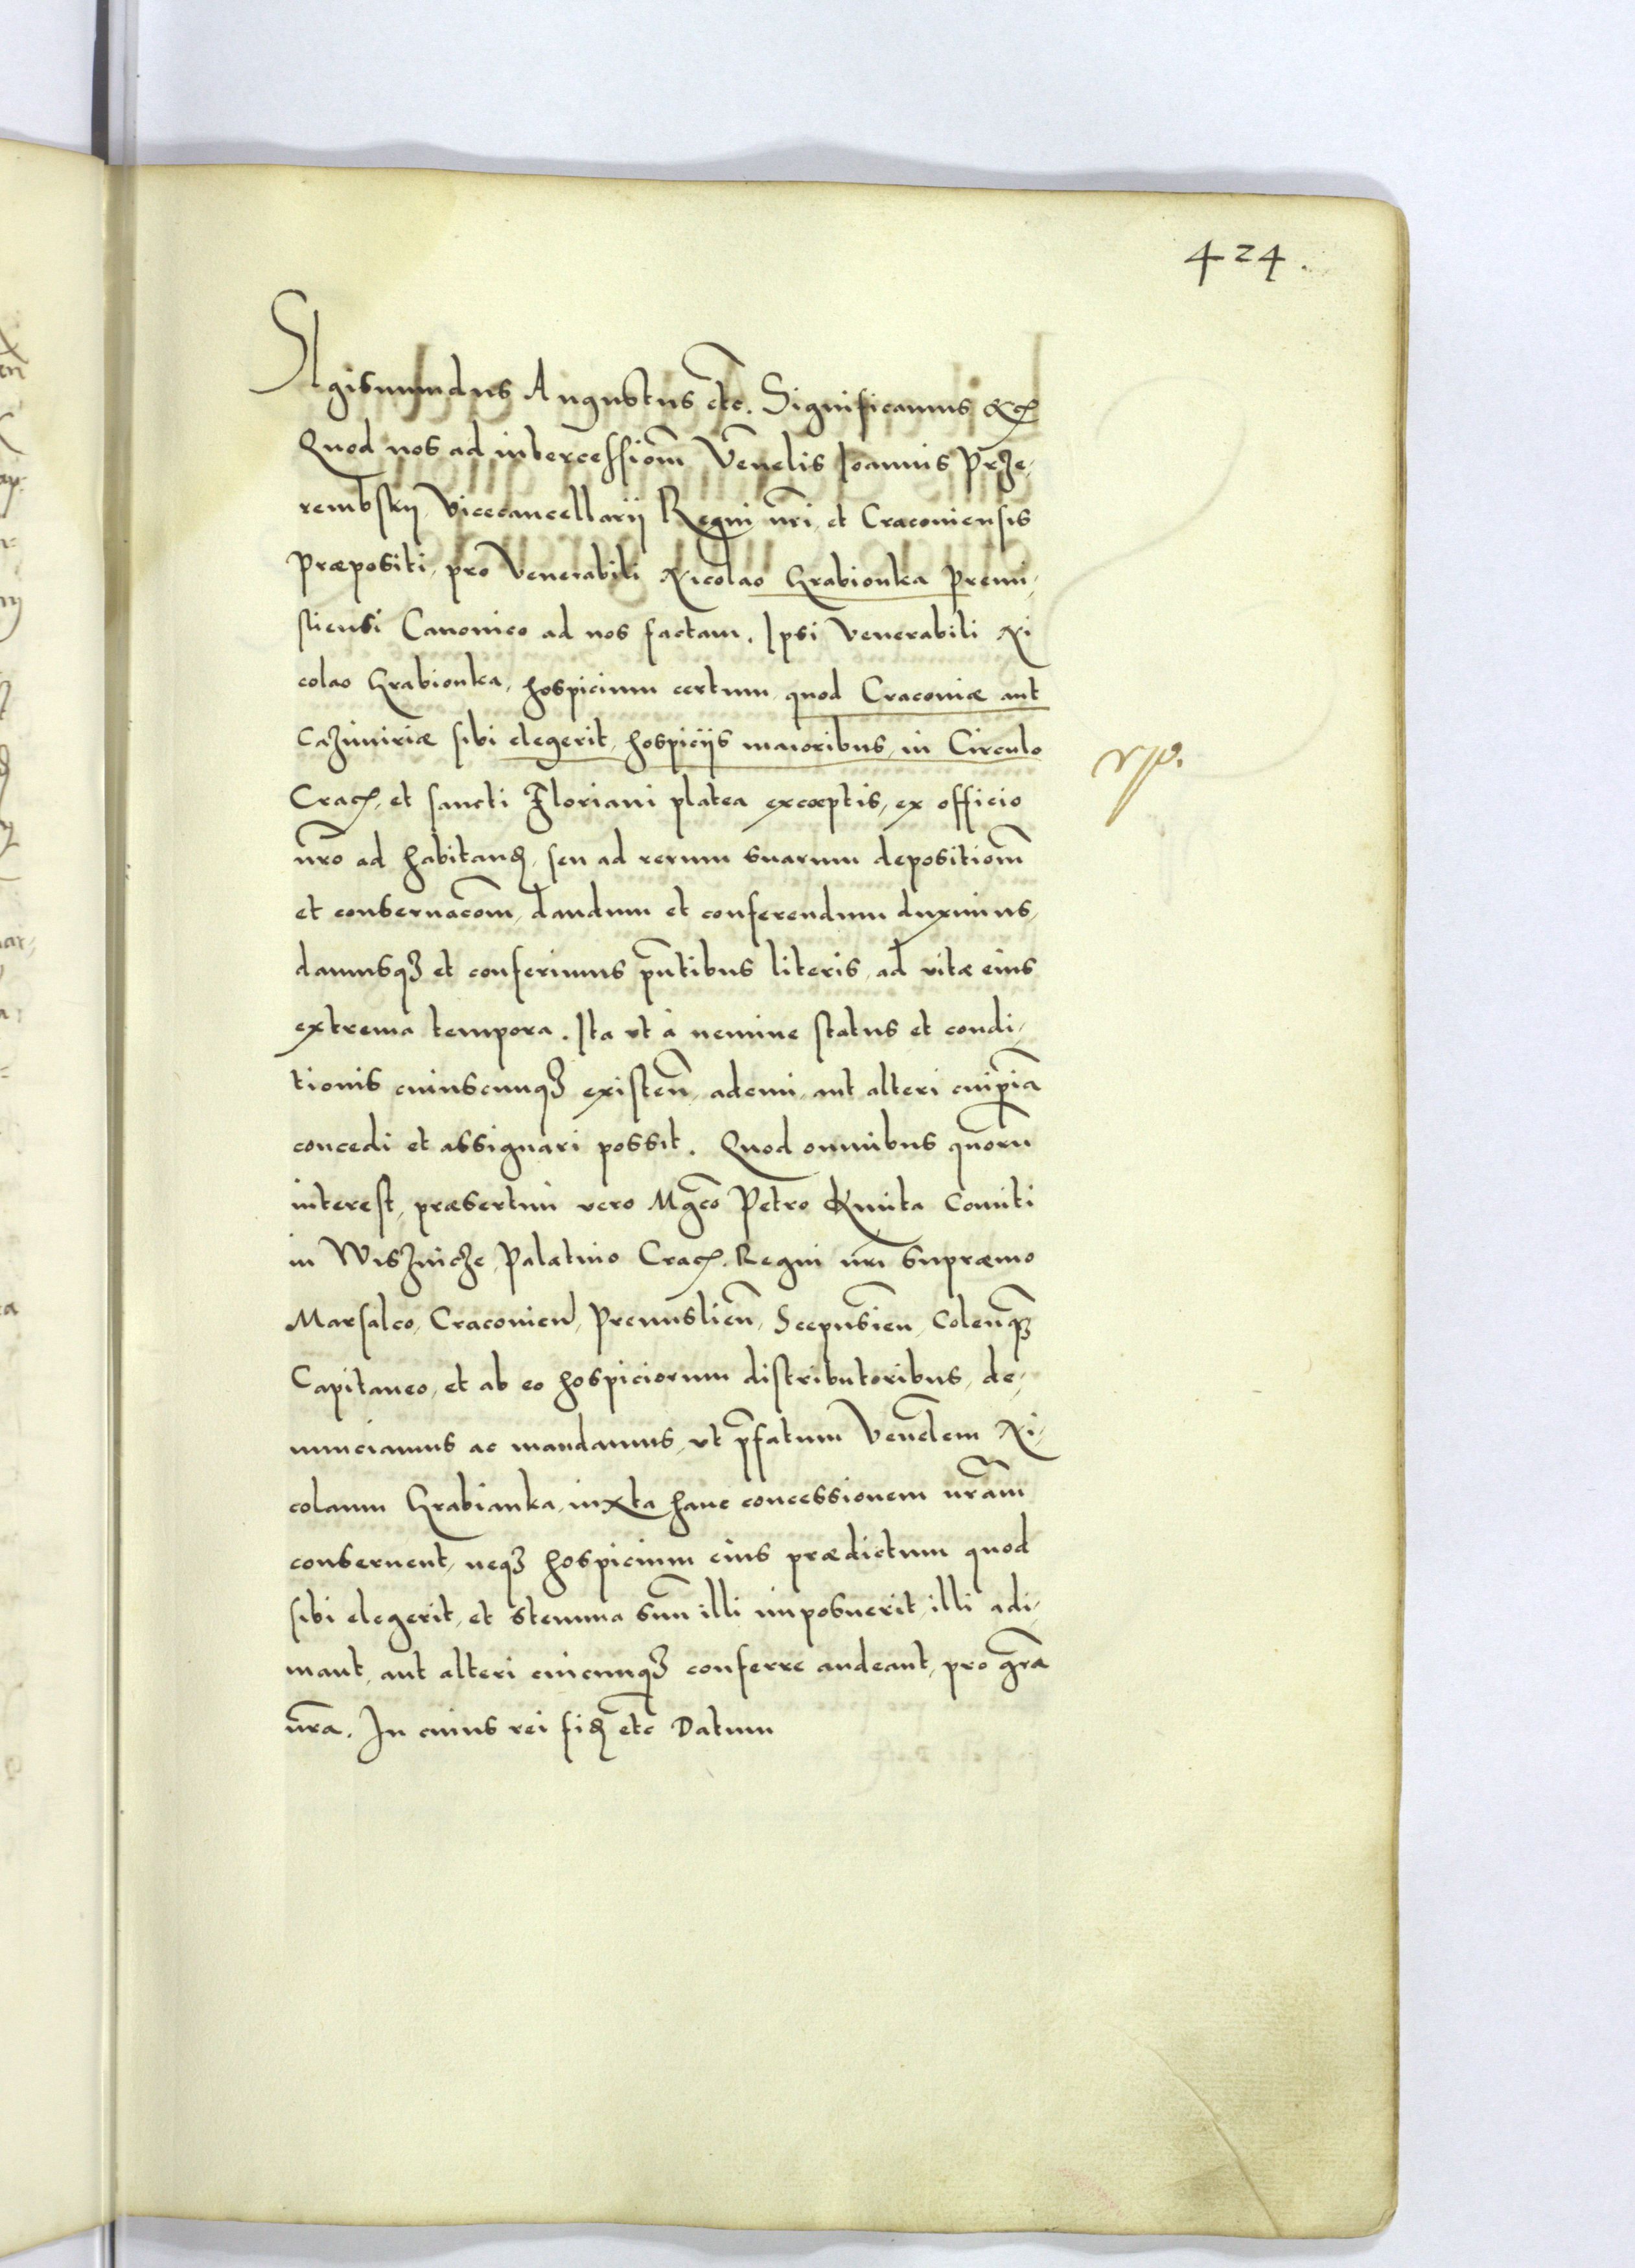 424.
SIgismundus Augustus etc. Significamus etc
Quod nos ad intercessiom̄ Venēlis Joannis Prze,
rembskij Vicecancellarij Regni nr̄i, et Cracoviensis
Præpositi, pro Venerabili Nicolao Grabionka Premi,
sliensi Canonico ad nos factam. Ipsi Venerabili Ni
colao Grabionka, hospicium certum, quod Cracoviæ aut
Cazimiriæ sibi elegerit, hospicijs maioribus, in Circulo
Crac., et sancti Floriani platea exceptis, ex officio
nr̄o ad habitand., seu ad rerum suarum depositiom̄
et conservacom̄, dandum et conferendum duximus,
damusqȝ et conferimus pn̄tibus literis, ad vitæ eius
extrema tempora. Ita ut à nemine status et condi,
tionis cuiuscunqȝ existen̄, ademi, aut alteri cuipiā
concedi et assignari possit. Quod omnibus quorū
interest, præsertim vero Mgc̄o Petro Kmita Comiti
in Wisznicze, Palatino Crac., Regni nr̄i supræmo
Marsalco, Cracovien̄, Premislien̄, Scepusien̄, Colen̄qȝ
Capitaneo, et ab eo hospiciorum distributoribus, de,
nunciamus ac mandamus, ut p̄fatum Venēlem Ni,
colaum Grabianka, iuxta hanc concessionem nr̄am
conservent, neqȝ hospicium eius prædictum quod
sibi elegerit, et stemma suū illi imposuerit, illi adi,
mant, aut alteri cuicunqȝ conferre audeant, pro gr̄a
nr̄a. In cuius rei fid. etc Datum